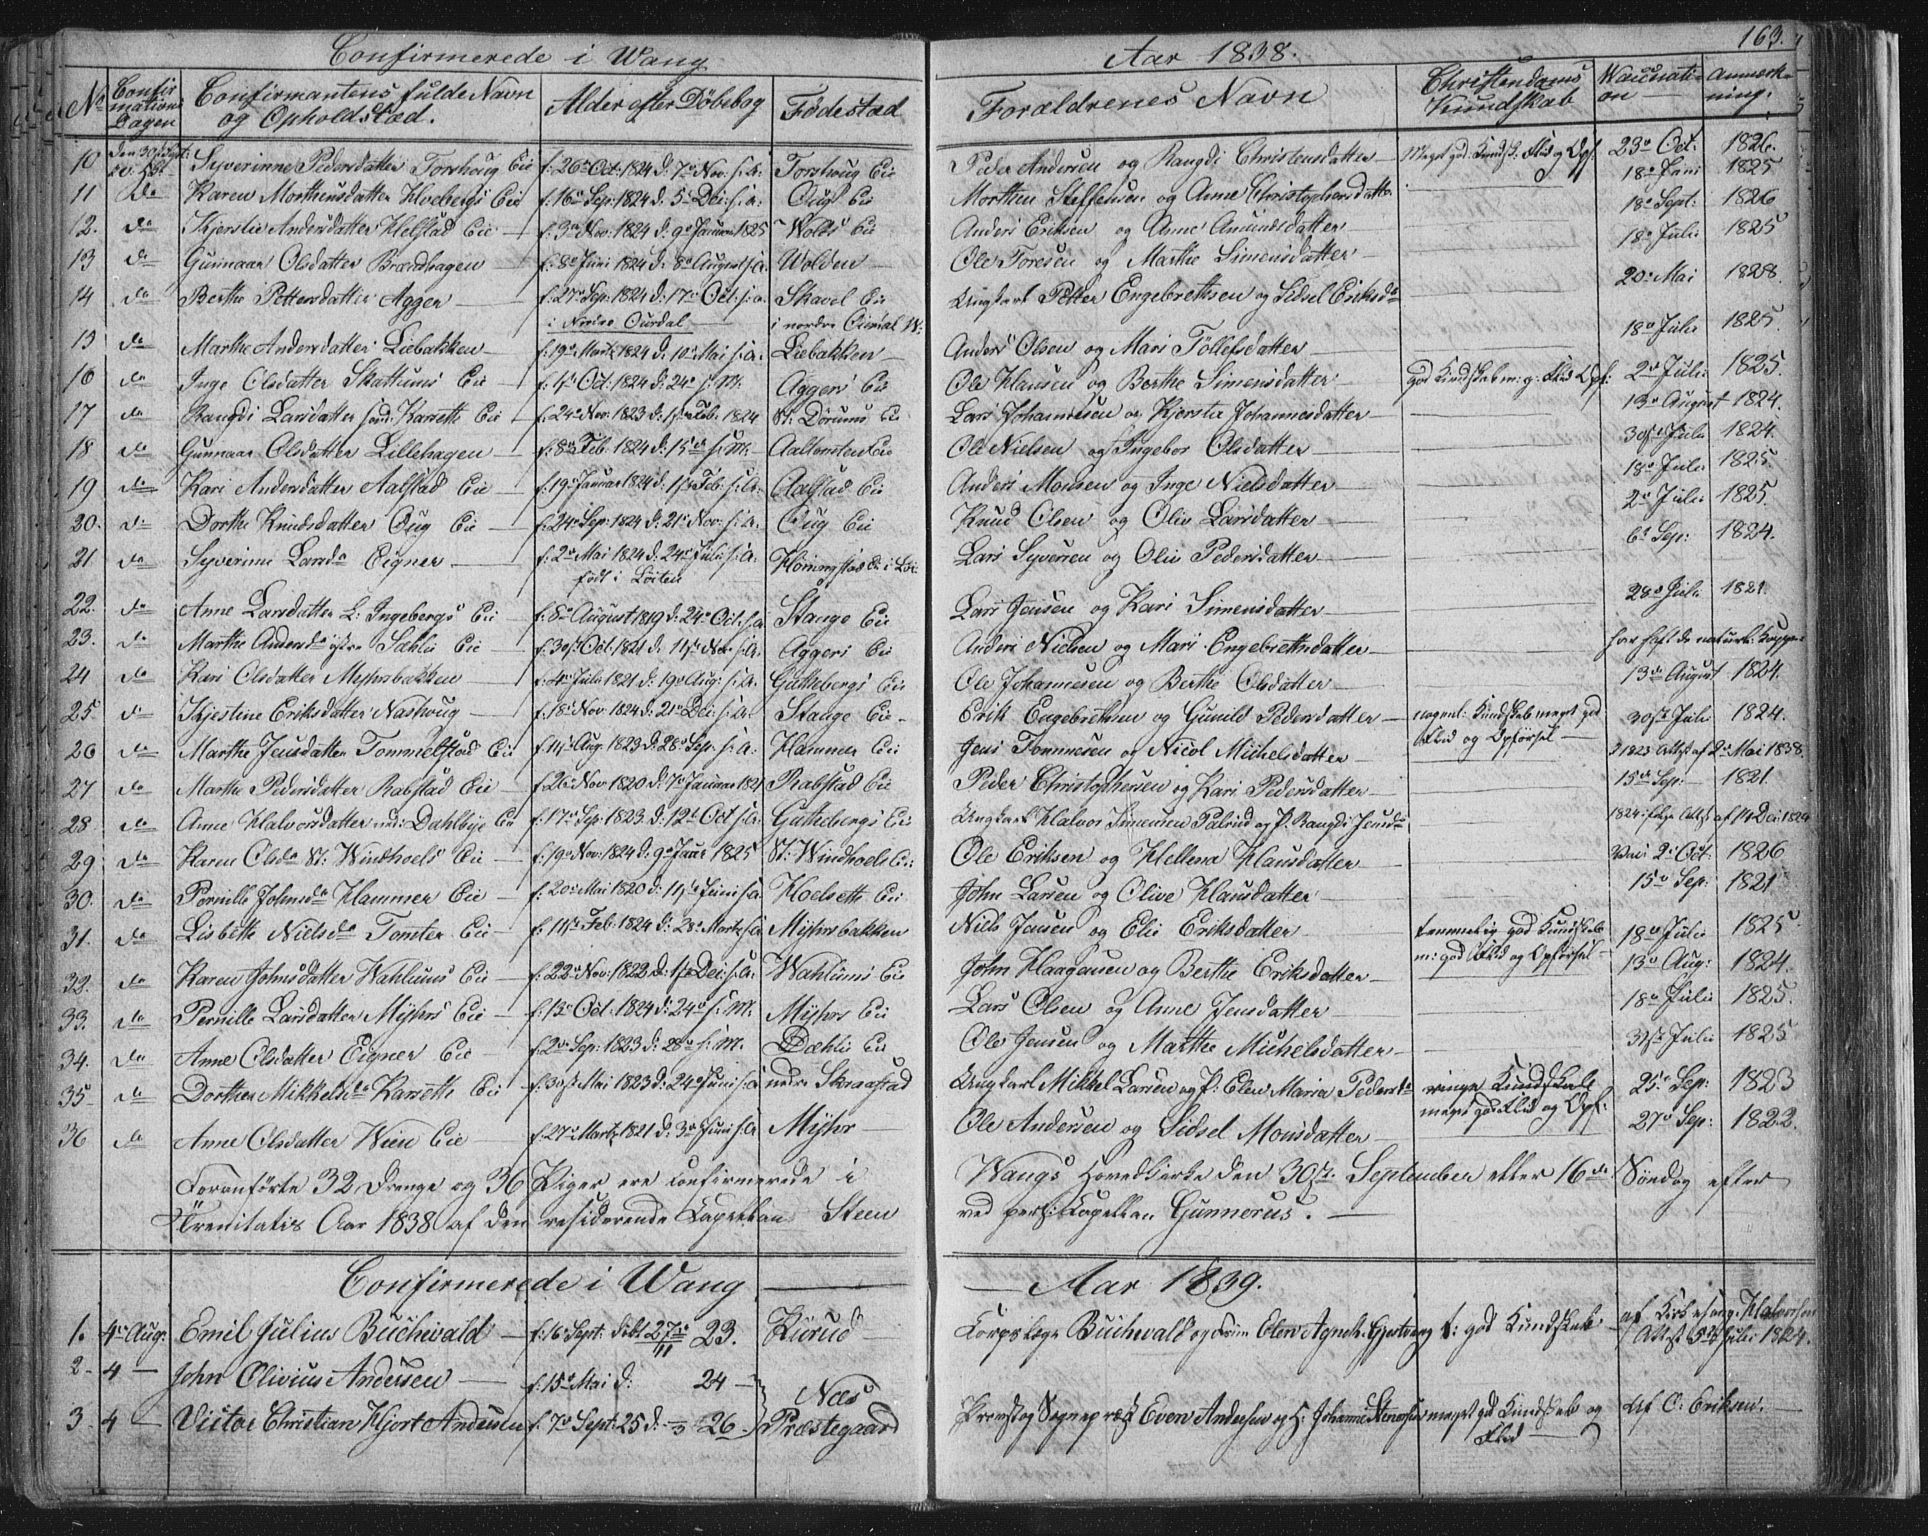 163.
Confirmerede i Wang Aar 1838.
No Confirmations Dagen Confirmantens fulde Navn og Opholdsted. Alder efter Döbebog Födestæd Forældrenes Navn Christendoms Kundskab Waccinati-on Anmærk-ning.
10 Syverinne Pedersdatter Torshoug Eie f. 26de Oct. 1824 d. 7de Nov. s: A: Torshoug Eie Peder Andersen og Rangdi Christensdatter Meget god Kundsk. Flid og Opf. 23de Oct. 1826.
11 do Karen Morthensdatter Hvebergs Eie f. 16de Sep. 1824 d. 5te Dec. s: A. Oug Eie Morthen Steffensen og Anne Christophersdatter 18de Juni 1825
12. do Kjerstie Andersdatter Helstad Eie f. 3de Nov. 1824 d. 9de Januar 1825 Wolds Eie Anders Eriksen og Anne Amundsdatter 18de Sept: 1826
13 do Gunnaar Olsdatter Brædhagen f. 8de Juni 1824 d. 8de August s: A. Wolden Ole Toresen og Marthe Simensdatter 18de Julii 1825
14 do Berthe Pettersdatter Agger f. 27de Sep. 1824 d. 17de Oct. s: a. Skavel Eie Ungkarl Petter Engebrethsen og Sidsel Eriksda 20de Mai 1828
i Nordre Ourdal i nordre Ourdal
15 do Marthe Andersdatter Liebakken f. 19de Marts 1824 d. 10de Mai s: A. Liebakken Anders Olsen og Mari Töllefsdatter 18de Julii 1825.
16 do Inge Olsdatter Skattums Eie f. 1ste Oct. 1824 d. 24de s: M. Aggers Eie Ole Hansen og Berthe Simensdatter god Kundskab m: g: Flid Opf: 2de Julii 1825.
17 do Rangdi Larsdatter Karsethe Eie f. 24de Nov. 1823 d. 1ste Feb. 1824 St: Dörums Ei Lars Johannesen og Kjerstie Johannesdatter 13de August 1824.
18 do Gunnaar Olsdatter Lillehagen f. 8de Feb. 1824 d. 15de s: M. Aaltomten Eie Ole Nielsen og Ingebor Olsdatter 30te Julii 1824.
19 do Kari Andersdatter Aalstad Eie f. 19 Januar 1824 d. 1ste Feb. s: A. Aalstad Eie Anders Monsen og Inge Nielsdatter 18de Julii 1825.
20. do Dorthe Knudsdatter Oug Eie f. 24de Sep. 1824 d. 21de Nov. s: A. Oug Eie Knud Olsen og Oliv Larsdatter 2de Julii 1825.
21 do Syverine Larsda Eigner f. 2de Mai 1824 d. 24de Julii s: A. Honingstad Ei i Löi: Lars Syversen og Oliv Pedersdatter 6te Sep: 1824.
født i Löiten
22. do Anne Larsdatter L: Ingebergs Eie f. 8de August 1819 d. 24de Oct. s: a Stange Eie Lars Jensen og Kari Simensdatter 28de Julii 1821.
23. do Marthe Andersda östre Sahlie Eie f. 30te Oct. 1821 d. 11te Nov s: A. Aggers Eie Anders Nielsen og Mari Engebrethsdatter har haft de naturl: Kopper
24 do Kari Olsdatter Myhrsbakken f. 4de Julii 1821 d. 19de Aug: s: A. Gaathebergs Eie Ole Johannesen og Berthe Olsdatter 13de August 1824.
25. do Kjestine Eriksdatter Nashoug f. 18de Nov. 1824 d. 21de Dec. s: A. Stange Eie Erik Engebrethsen og Gunild Pedersdatter nogenl: Kundskab meget god Flid og Opförsel 30te Julii 1824.
26 do Marthe Jensdatter Tommelstad Eie f. 11te Aug. 1823 d. 28de Sep. s: A. Hammer Eie Jens Tommesen og Nicol Michelsdatter 1823 Attest af 2de Mai 1838.
27 do Marthe Pedersdatter Rabstad Eie f. 26de Nov 1820 d. 7de Januar 1821 Rabstad Eie Peder Christophersen og Kari Pedersdatter 15de Sep: 1821.
28 do Anne Halvorsdatter Dahlbye Eie f. 17de Sep. 1823 d. 12te Oct s: A. Gaathebergs Eie Ungkarl Halvor Simensen og P. Rangdi Jensda 1824 ifölge Attest af 14 Dec: 1824
29 do Karen Olsda St: Windhoels Eie f. 19de Nov. 1824 d. 9de Januar 1825 St: Windhoels Ei: Ole Eriksen og Hellena Hansdatter 2de Oct: 1826
30. do Pernille Johnsda Hammer Eie f. 20de Mai 1820 d. 11te Juni s: a Hoelsethe Eie John Larsen og Olive Hansdatter 15de Sep: 1821
31. do Lisbeth Nielsda Tomter Eie f. 11te Feb. 1824 d. 28de Marts s: a Myhrsbakken Niels Jensen og Elie Eriksdatter temmelig god Kundskab m: god Flid og Opförsel 18de Julii 1825
32. do Karen Johnsdatter Wahlums Eie f. 22de Nov. 1822 d. 1ste Dec: s: A. Wahlums Eie John Haagensen og Berthe Eriksdatter 13de Aug: 1824.
33. do Pernille Larsdatter Myhrs Eie f. 13de Oct. 1824 d. 24de s: M. Myhrs Eie Lars Olsen og Anne Jensdatter 18de Julii 1825.
34. do Anne Olsdatter Eigner Eie f. 2de Sep. 1823 d. 28de s: M. Dæhlie Ei Ole Jensen og Marthe Michelsdatter 31te Julii 1825
35 do Dorthea Mikkelsda Karsethe Eie f. 30te Mai 1823 d. 24de Juni s: A nedre Skraastad Ungkarl Mikkel Larsen og P: Elen Maria Pedersda ringe Kundskab meget god Flid og Opf: 25de Sep: 1823
36 do Anne Olsdatter Wein Eie f. 27de Marts 1821 d. 3de Juni s: A. Myhr Ole Andersen og Sidsel Monsdatter 27de Sep: 1822.
Foranförte 32 Drenge og 36 Piger ere confirmerede i Wangs Hovedkirke den 30te September eller 16de Söndag efter
Trenitatis Aar 1838 af den residerende Capellan Steen ved pers: Capellan Gunnerus.
Confirmerede i Wang Aar 1839.
1. 4de Aug: Emil Julius Buchwald f. 16de Sept. döbt 27de/11 23. Kurud Corpslæge Buchwald og Frue Elen Agneth. Gjestvang t: god Kundskab af Kirkesang. Halvorsen Attest 5te Julii 1824.
2 4 John Olivius Andersen f. 15de Mai d: 24 Næs Præstegaard
3 4 Victor Christian Hjort Andersen f. 7de Sept: 25 d: 26 Provst og Sognepræst Even Andersen og H. Johanne Stenersen meget god Kundskab og Flid Af O: Eriksen.